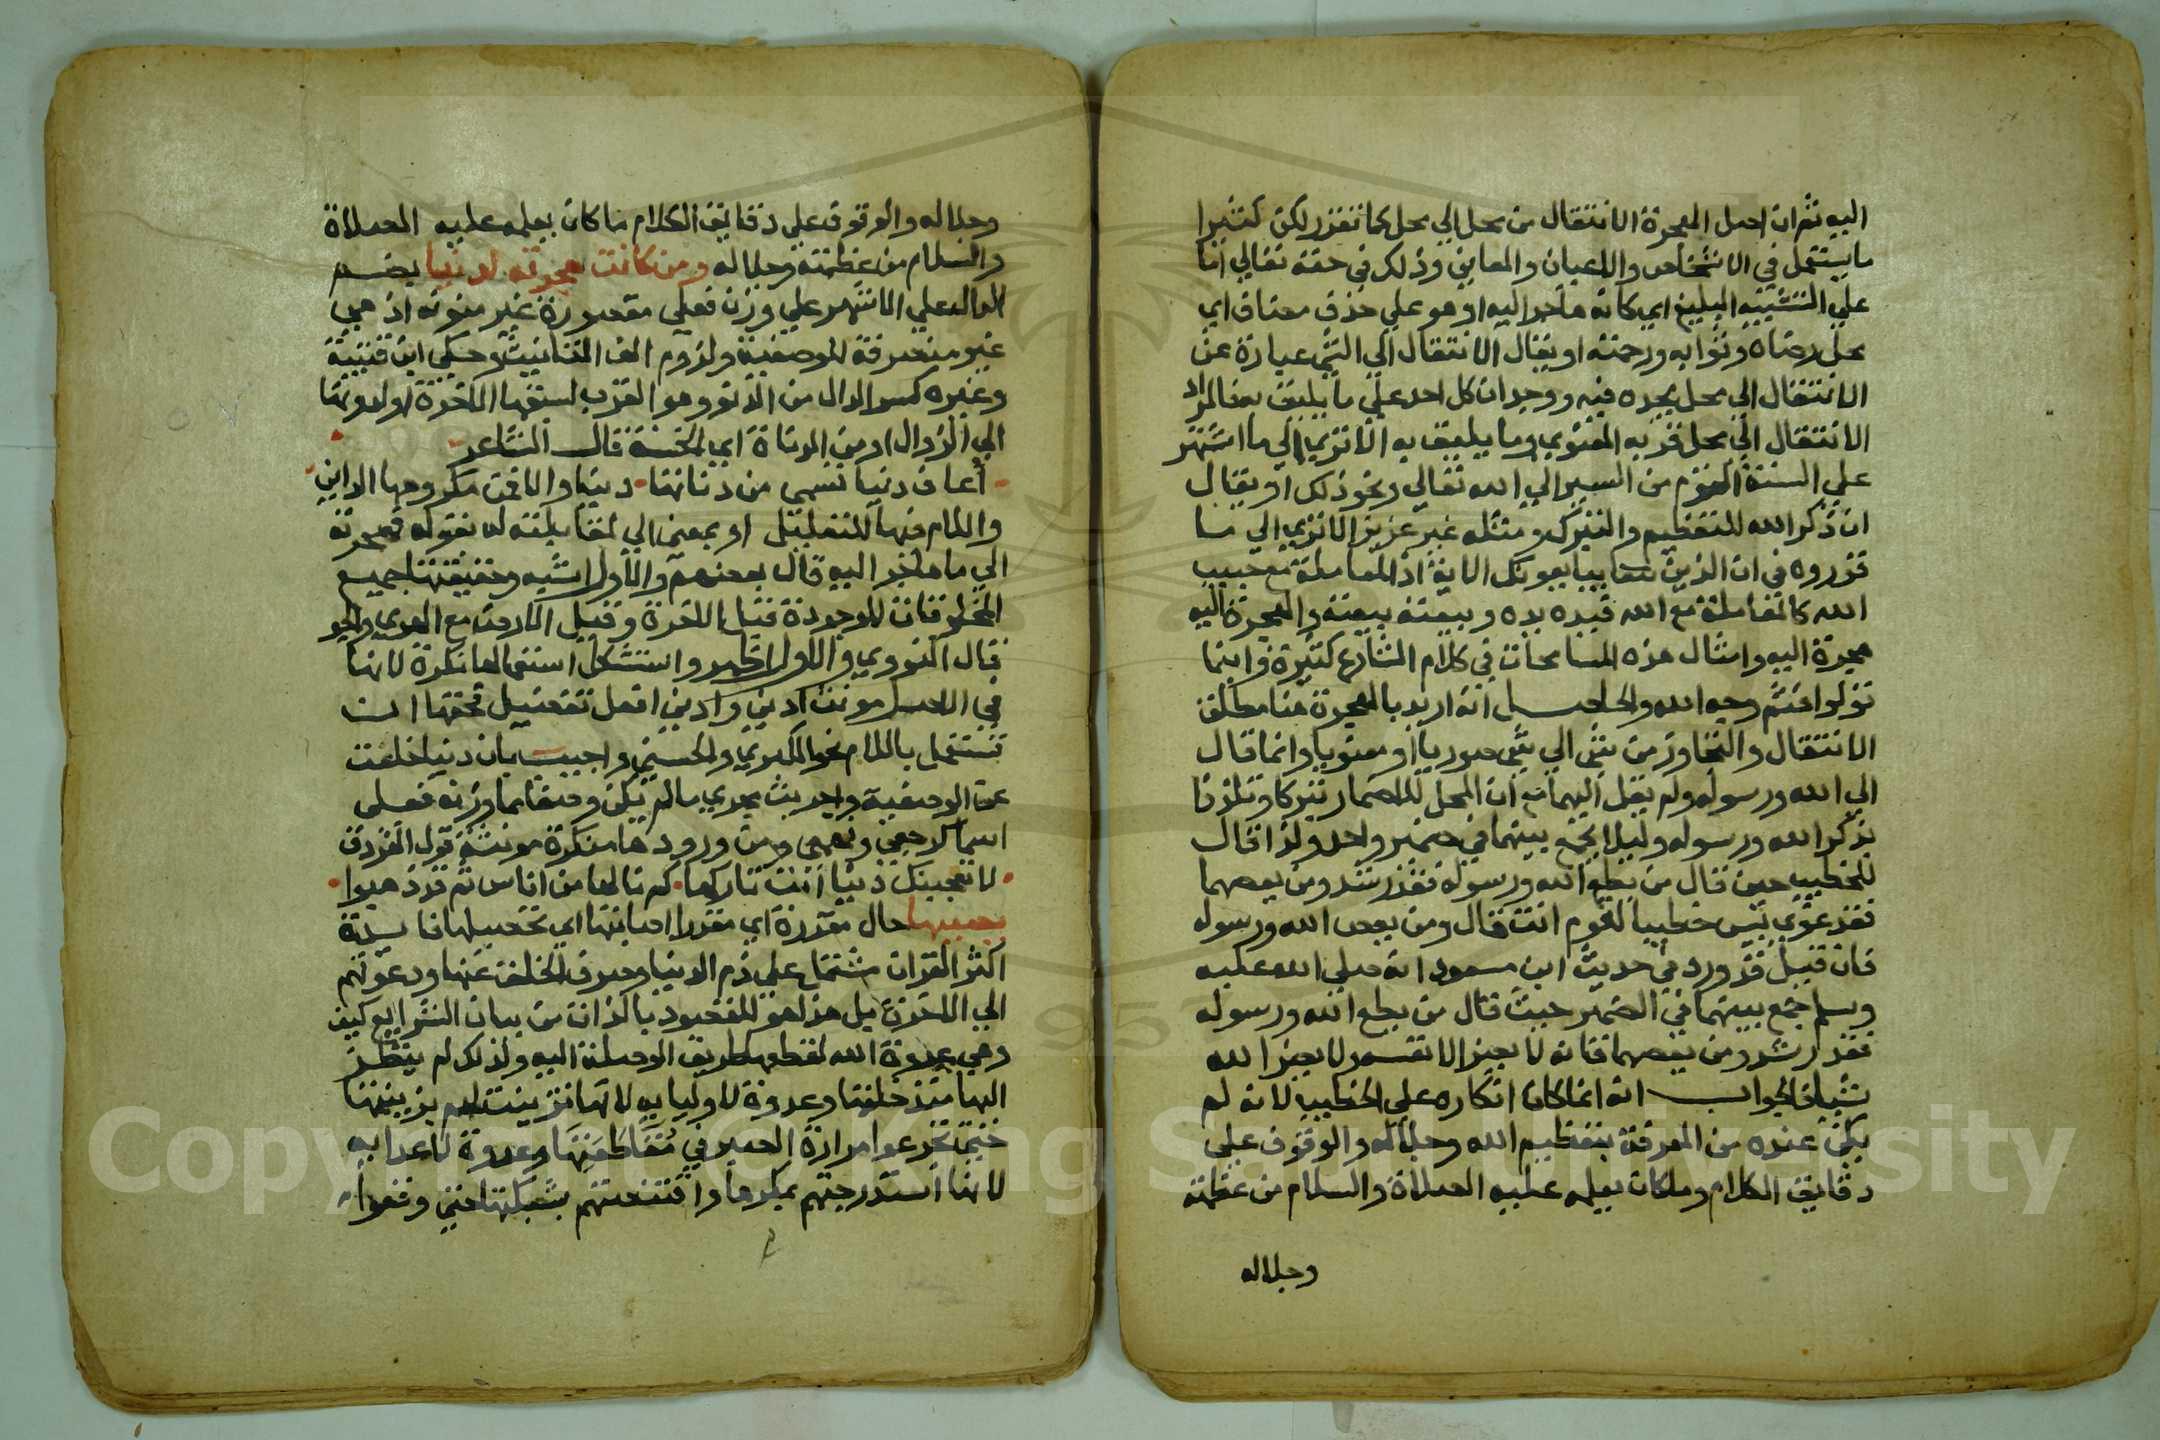 اليه ثم ان اصل الهجرة الانتقال من محل الي محل كما تقرر لكن كثيرا
ما يستعمل في الاشخاص والاعيان والمعاني وذلك في حقه تعالي اما
علي التشبيه البليغ اي كانه هاجر اليه او هو علي حذف مضاف اي
محل رضاه وثوابه ورحمته او يقال الانتقال الي الشي عبارة عن
الانتقال الي محل يجده فيه ووجدان كل احد علي ما يليق به فالمراد
الانتقال الي محل قربه المعنوي وما يليق به الا تري الي ما اشتهر
علي السنة القوم من السير الي الله تعالي ونحو ذلك او يقال
ان ذكر الله للتعظيم والتبرك ومثله غير عزيز الا تري الي ما
قرروه في ان الذين يبايعونك الاية اذ المعاملة مع حبيب
الله كالمعاملة مع الله فيده يده وبيعته بيعته والهجرة اليه
هجرة اليه وامثال هذه المسامحات في كلام الشارع كثيرة فاينما
تولوا فثم وجه الله والحاصل انه اريد بالهجرة هنا مطلق
الانتقال والتجاوز من شي الي شي صوريا او معنويا وانما قال
الي الله ورسوله ولم يقل اليهما مع ان المحل للاضمار تبركا وتلذذا
بذكر الله ورسوله وليلا يجمع بينهما في ضمير واحد ولذا قال
للخطيب حين قال من يطع الله ورسوله فقد رشد ومن يعصهما
فقد غوي بئس خطيب القوم انت قال ومن يعص الله ورسوله
فان قيل قد ورد في حديث ابن مسعود انه صلي الله عليه
وسلم جمع بينهما في الضمير حيث قال من يطع الله ورسوله
فقد رشد ومن يعصهما فانه لا يضر الا نفسه لا يضر الله
شيا فالجواب انه انما كان انكاره علي الخطيب لانه لم
يكن عنده من المعرفة بتعظيم الله وجلاله والوقوف علي
دقايق الكلام وما كان يعلمه عليه الصلاة والسلام من عظمته
وجلاله
وجلاله والوقوف علي دقايق الكلام ما كان يعلمه عليه الصلاة
والسلام من عظمته وجلاله ومن كانت هجرته لدنيا بضم
الدال علي الاشهر علي وزن فعلي مقصورة غير منونة اذ هي
غير منصرفة للوصفية ولزوم الف التانيث وحكي ابن قتيبة
وغيره كسر الدال من الدنو وهو القرب لسبقها الاخرة او لدنوها
الي الزوال او من الدناة اي الخسة قال الشاعر
أعاف دنيا تسمي من دنانتها دنيا والا فمن مكروهها الداني
واللام فيها للتعليل او بمعني الي لمقابلته له بقوله فهجرته
الي ما هاجر اليه قال بعضهم والاول اشبه وحقيقتها جميع
المخلوقات الموجودة قبل الاخرة وقيل الارض مع الهوي والجو
قال النووي والاول اظهر واستشكل استعمالها نكرة لانها
في الاصل مونث ادني وادني افعل تفضيل فحقها ان
تستعمل باللام نحو الكبري والحسني واجيب بان دنيا خلعت
عن الوصفية واجريت مجري ما لم يكن وصفا مما وزنه فعلي
اسما كرجعي وبهمي ومن ورودها منكرة مونثة قول الفرزدق
لا تعجبنك دنيا انت تاركها كم نالها من اناس ثم قد ذهبوا
يصيبها حال مقدرة اي مقدرا اصابتها اي تحصيلها فايدة
اكثر القران مشتمل علي ذم الدنيا وصرف الخلق عنها ودعوتهم
الي الاخرة بل هذا هو المقصود بالذات من بيان الشرايع كيف
وهي عدوة الله لقطعها طريق الوصلة اليه ولذلك لم ينظر
اليها منذ خلقها وعدوة لاوليايه لانها تزينت لهم بزينتها
حتي تجرعوا مرارة الصبر في مقاطعتها وعدوة لاعدايه
لانها استدرجتهم بمكرها واقتنصتهم بشبكتها حتي وثقوا
Copyright © King Saud University